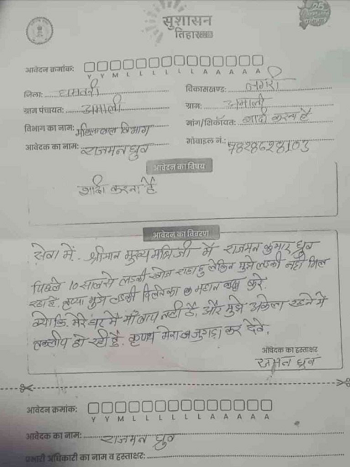 सुशासन
तिहार
आवेदन क्रमांक:
Y Y M L L L L L L A A A A A
जिला: धमतरी विकासखण्ड: नगरी
ग्राम पंचायत: ग्राम:
विभाग का नाम: महिला बाल विभाग मांग/शिकायत: शादी करना है
आवेदक का नाम: राजमन ध्रुव मोबाईल नं.:
आवेदन का विषय
शादी करना है
आवेदन का विवरण
सेवा में, श्रीमान मुख्यमंत्री जी में राजमन कुमार ध्रुव
पिछले 10 सालों से लड़की खोज रहा हु लेकिन मुझे लड़की नही मिल
रहा है, कृप्या मुझे लड़की दिलाने का कष्ट करे
क्योकि मेरे घर में माँ बाप नही है, और मुझे अकेला रहने में
तकलीफ हो रही है, कृपया मेरा जुगाड़ कर देवे.
आवेदक का हस्ताक्षर
राजमन ध्रुव
आवेदन क्रमांक:
Y Y M L L L L L L A A A A A
आवेदक का नाम: राजमन ध्रुव
प्रभारी अधिकारी का नाम व हस्ताक्षर: